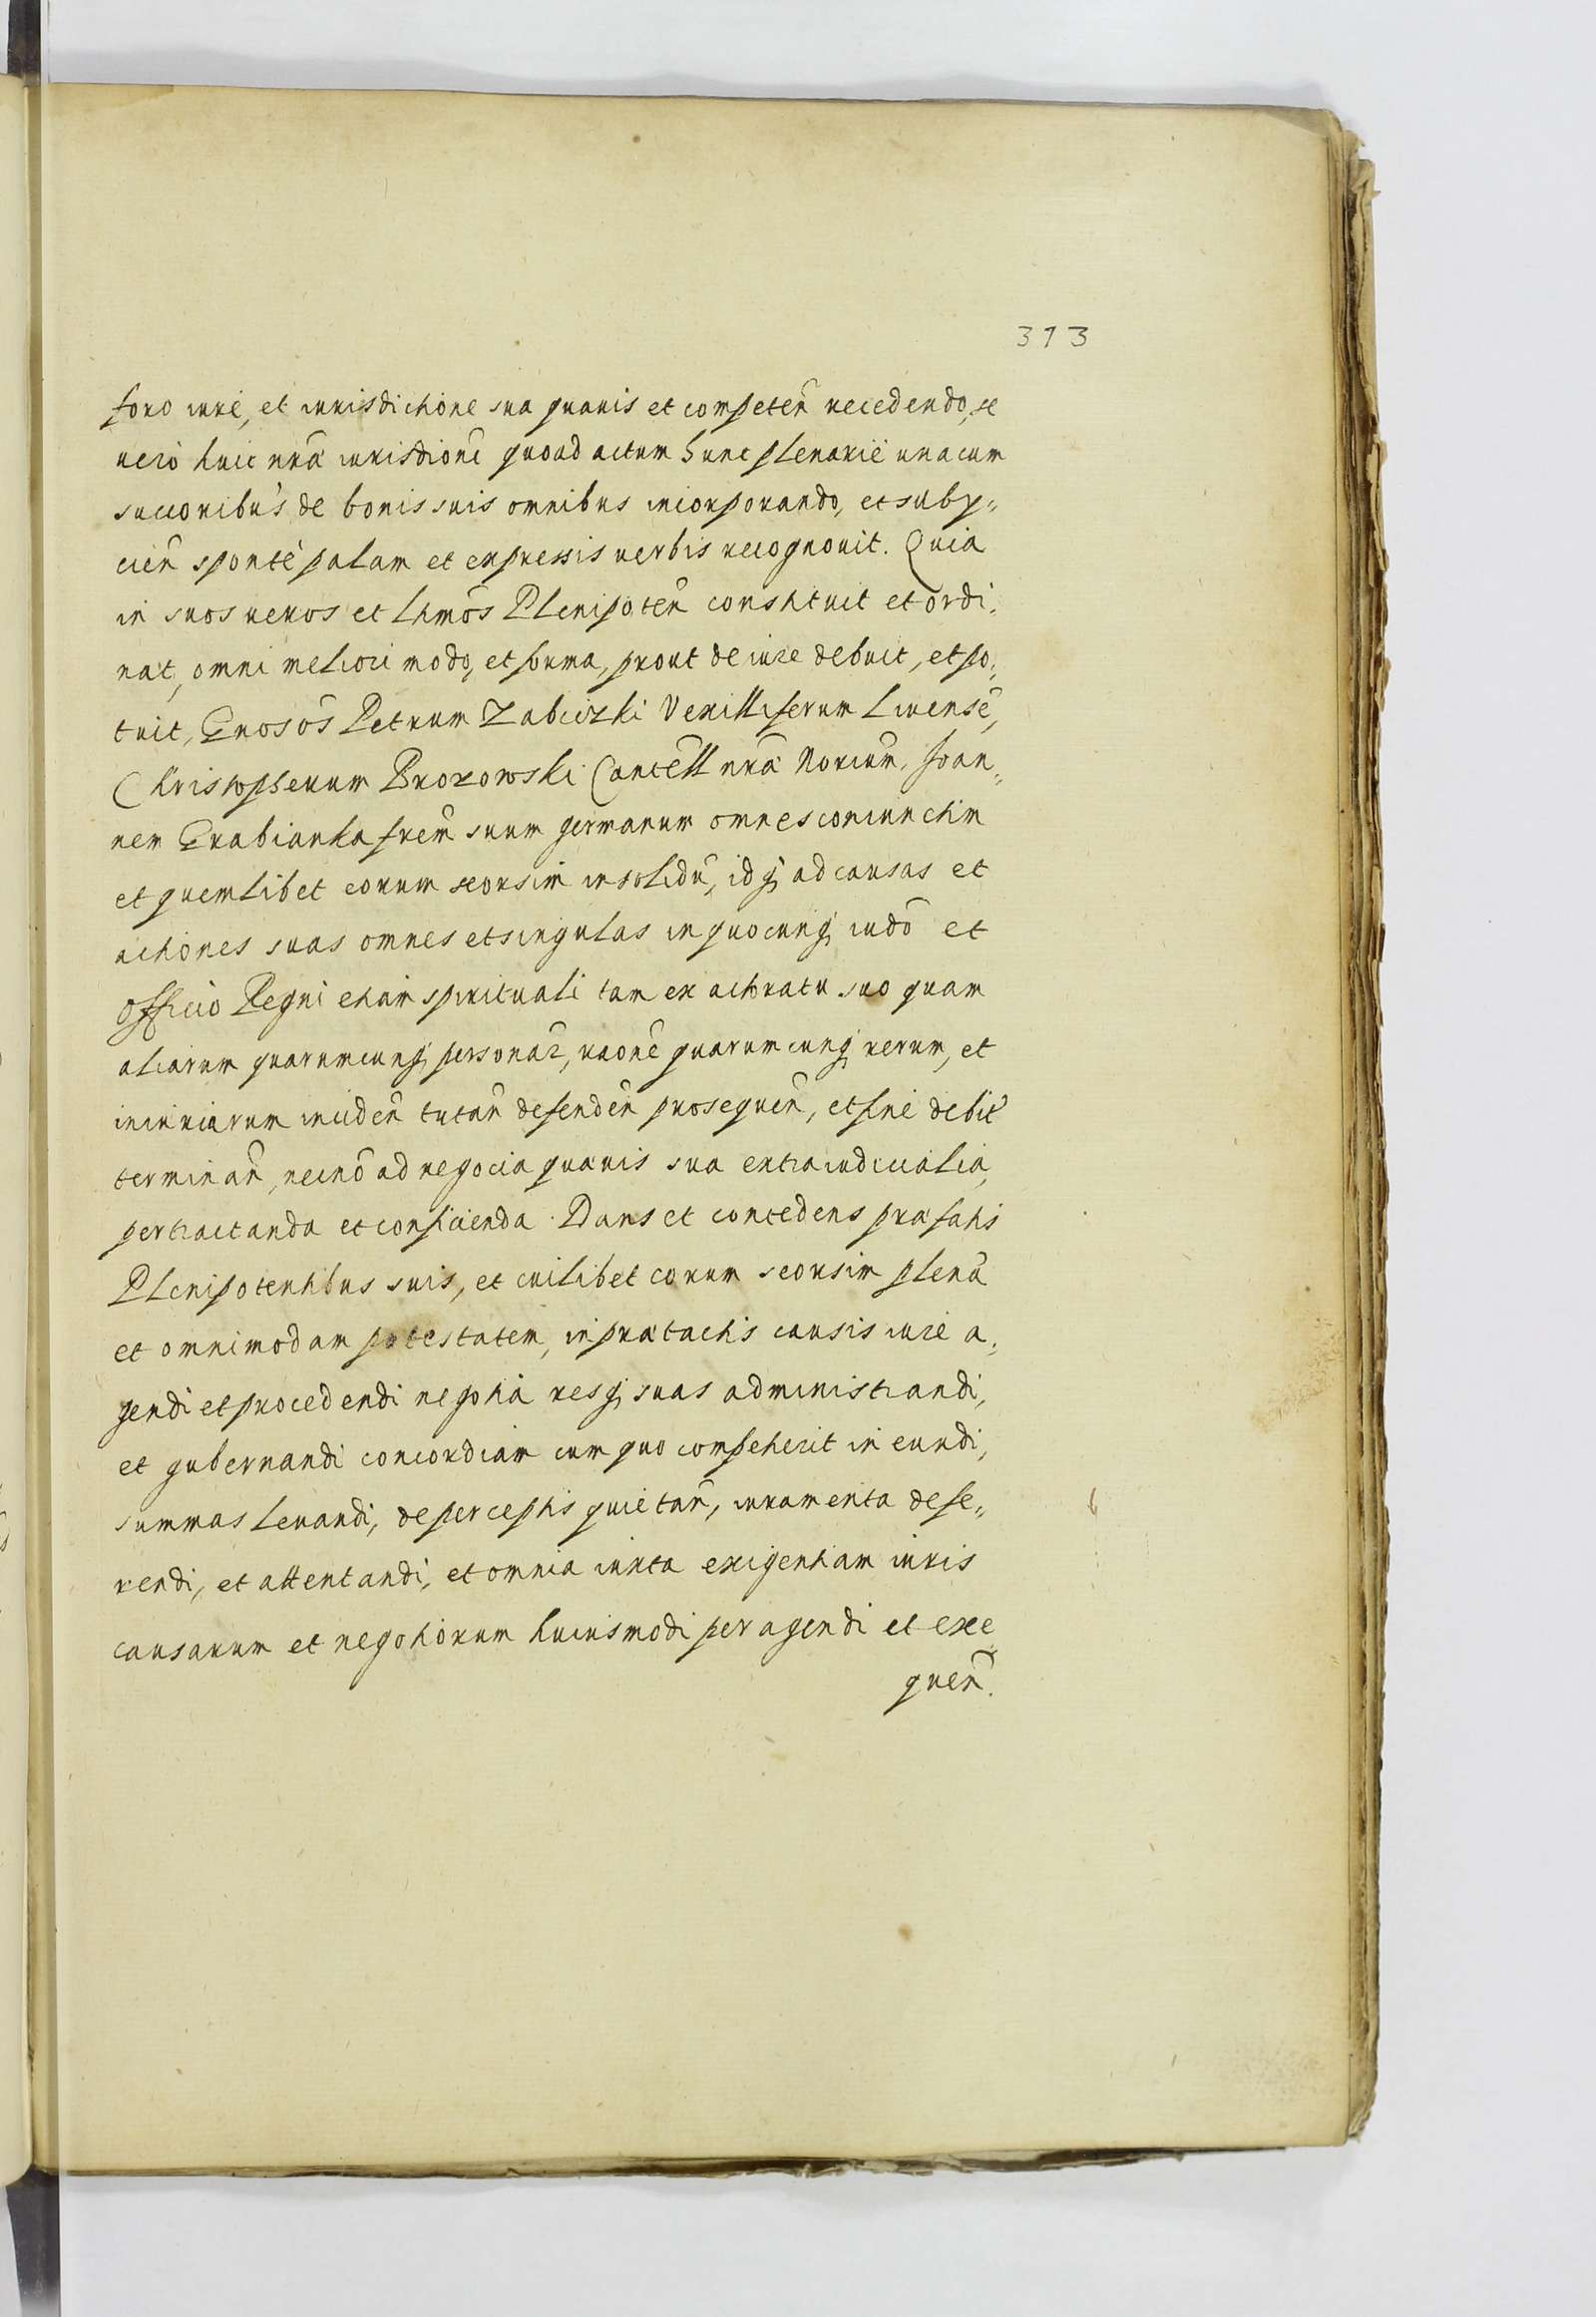 313
foro iure, et iurisdictione sua quauis et competeñ recedendo, se
uerò huic nrã iurisdioni quoad actum hunc plenariè unacum
succoribus de bonis suis omnibus incorporando, et subÿ„
cień spontè palam et expressis uerbis recognouit. Quia
in suos ueros et lttmõs Plenipoteñ constituit et ordi„
nat, omni meliori modo, et forma, prout de iure debuit, et po„
tuit, Gnosõs Petrum Zabiczki Vexilliferum Liuensẽ,
Christopherum Brozowski Cancell nrã Noriũm, Joan„
nem Grabianka frẽm suum germanum omnes coniunctim
et quemlibet eorum seorsim in solidũ, idq̃ ad causas et
actiones suas omnes et singulas in quocunq̃ iudõ et
Officio Regni etiam spirituali tam ex actoratu suo quam
aliarum quarumcunq̃ personar̃, raõne quarumcunq̃ rerum, et
iniuriarum incideñ tutañ defendeñ prosequeñ, et finè debit̃
terminañ, necnõ ad negocia quauis sua extraiudicialia,
pertractanda et conficienda. Dans et concedens præfatis
Plenipotentibus suis, et cuilibet eorum seorsim plenã
et omnimodam potestatem, in prætactis causis iure a„
gendi et procedendi negotia resq̃ suas administrandi,
et gubernandi concordiam cum quo competierit in eundi,
summas leuandi, de perceptis quietañ, iuramenta defe„
rendi, et attentandi, et omnia iuxta exigentiam iuris
causarum et negotiorum huiusmodi peragendi et exe„
queñ.